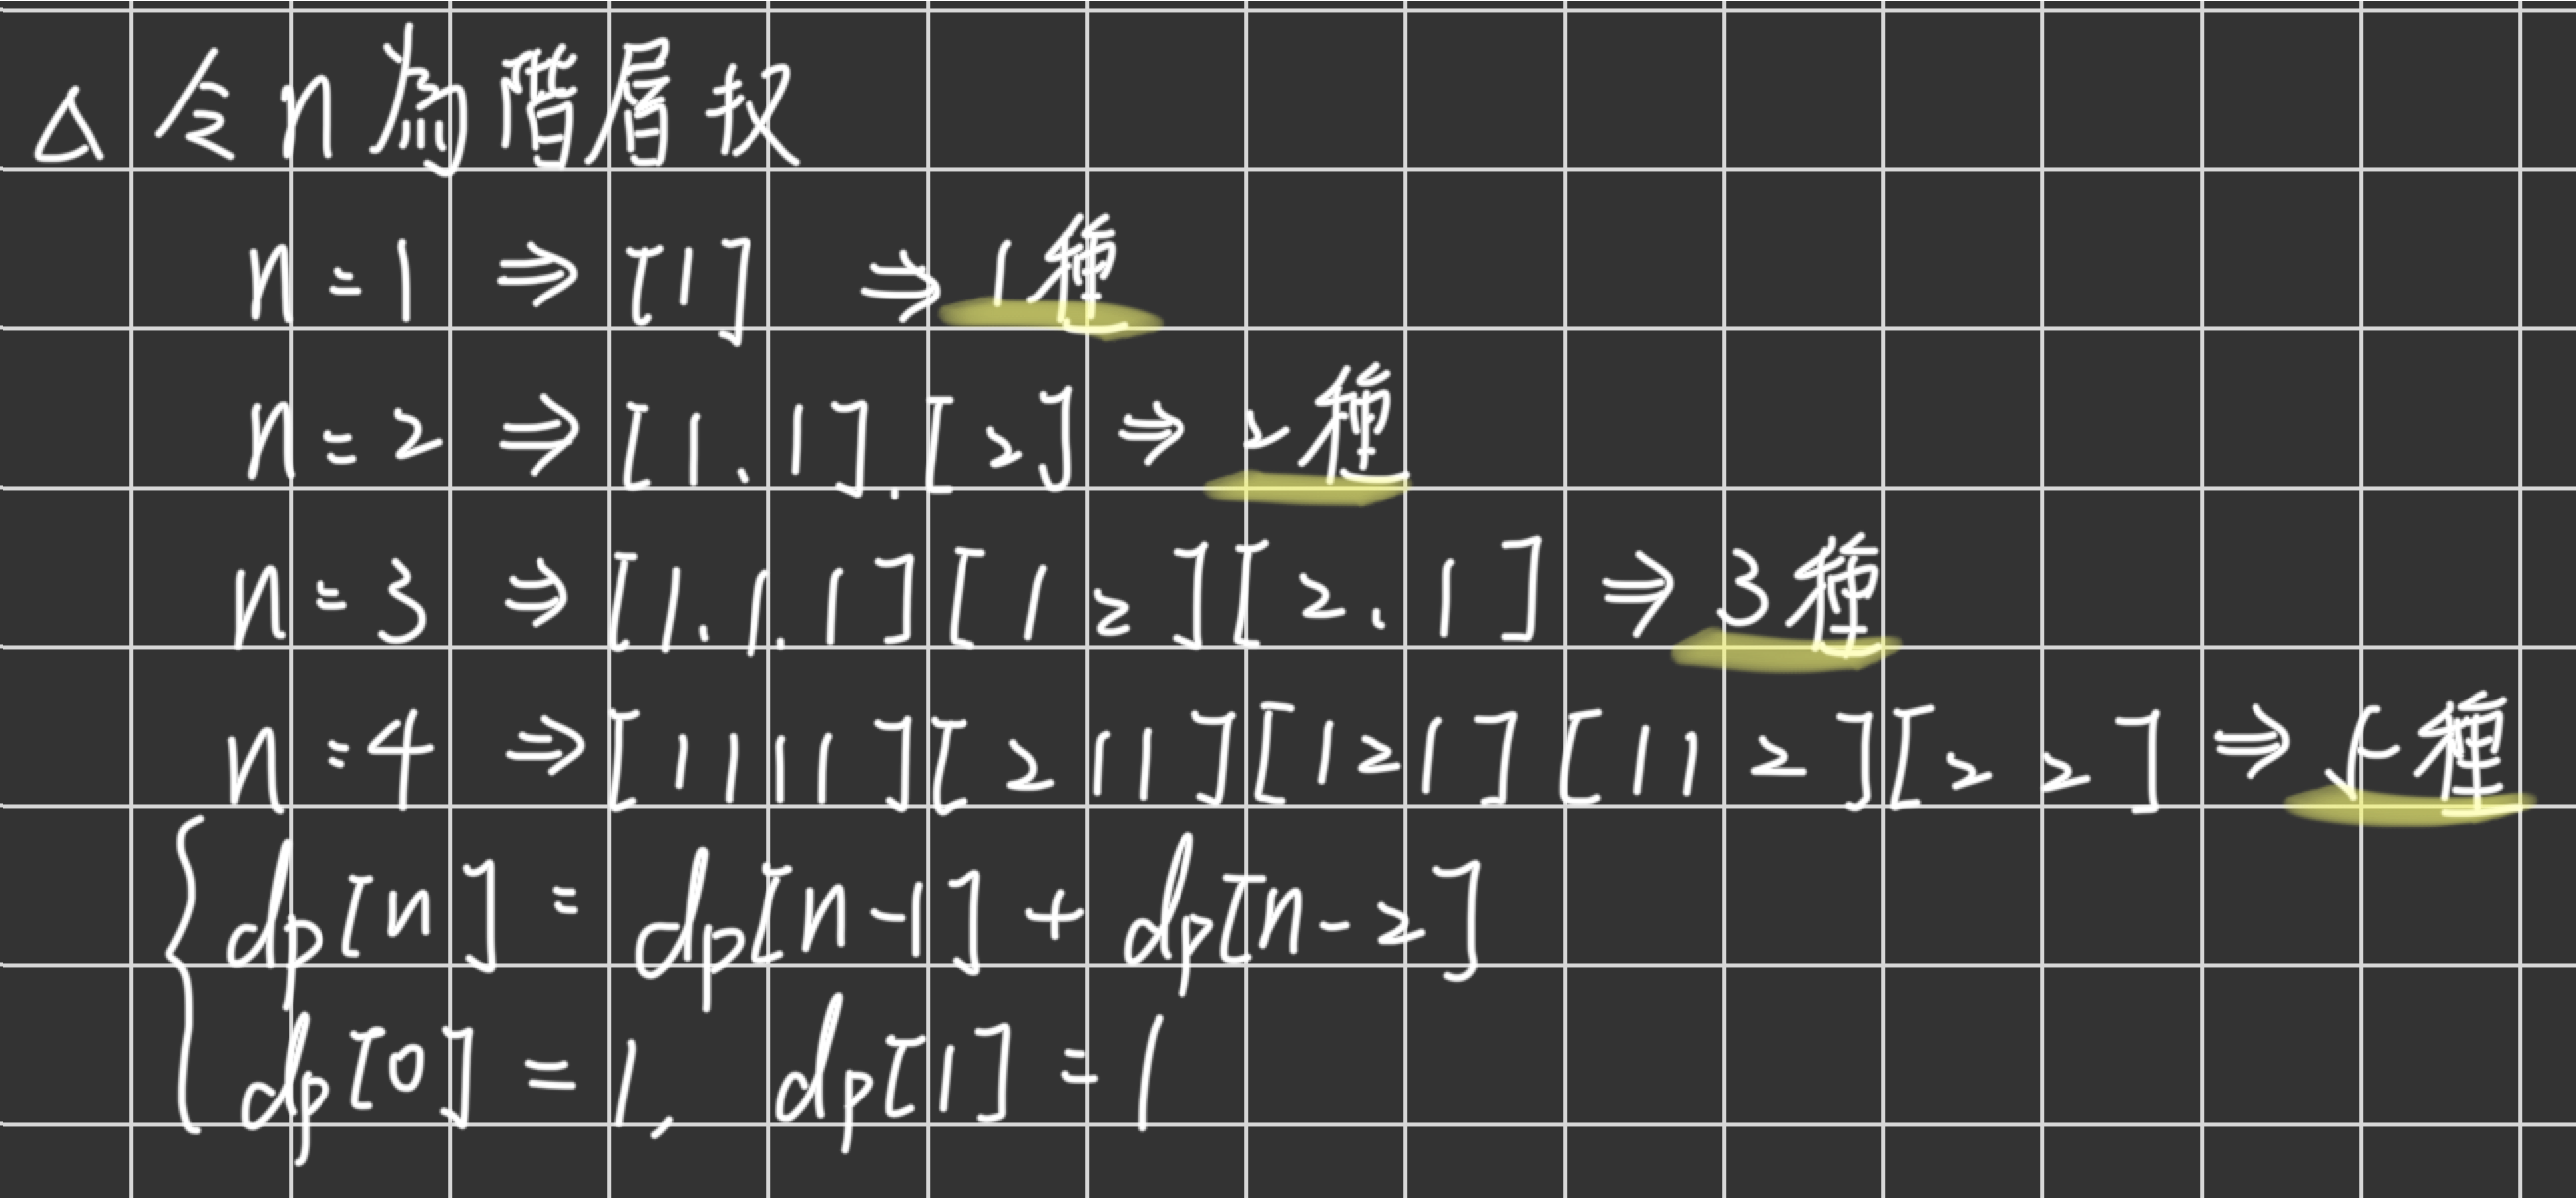 △ 令n為階層数
n=1 ⇒ [1] ⇒ 1種
n=2 ⇒ [1.1].[2] ⇒ 2種
n=3 ⇒ [1.1.1][1 2][2.1] ⇒ 3種
n=4 ⇒ [1111][211][121][112][2 2] ⇒ 5種
dp[n] = dp[n-1] + dp[n-2]
dp[0] = 1, dp[1] = 1